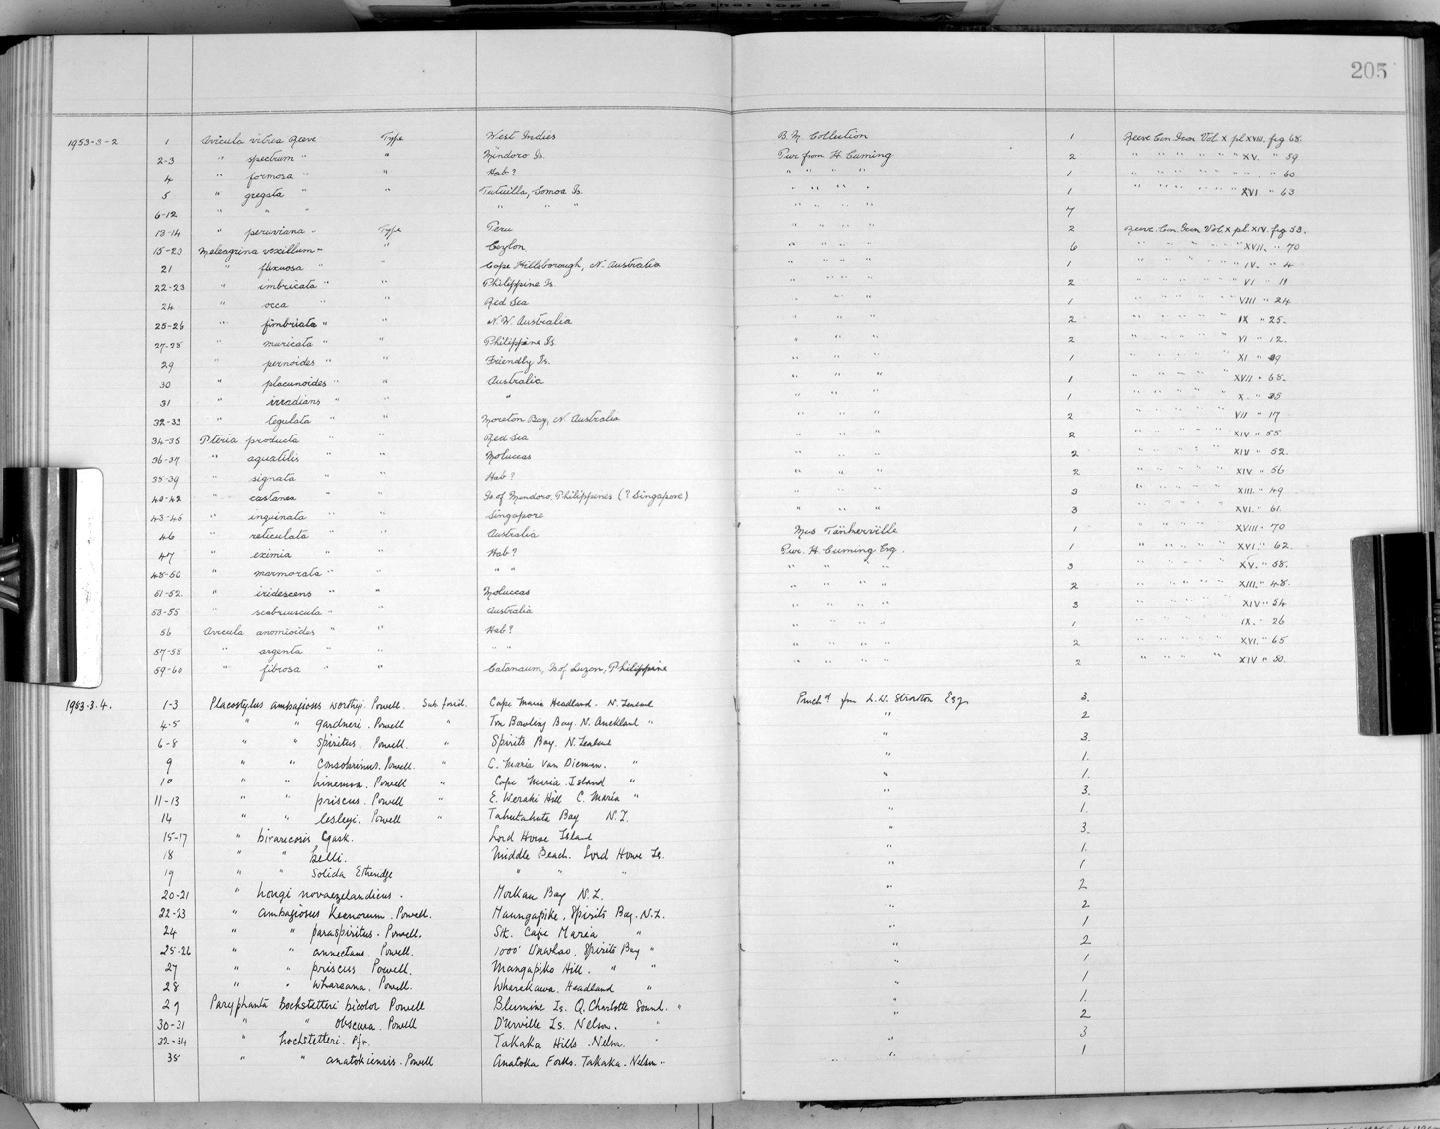 205
1953-3-2 1 Avicula vitrea Reeve Type West Indies B.M. Collection 1 Reeve Con. Icon Vol. X pl XVIII. fig 68.
2-3 " spectrum " " Mindoro Is. Pur from H. Cuming 2 " " " " " XV. " 59
4 " formosa " " Hab? " " " " 1 " " " " " " " 60
5 " gregata " " Tutuilla, Somoa Is. " " " 1 " " " " " XVI " 63
6-12 " " " " " " " " " " 7
13-14 " peruviana " Type Peru " " " 2 Reeve Con. Icon Vol. X pl XIV. fig 53.
15-20 Meleagrina vexillum " " Ceylon " " " 6 " " " " XVII. " 70
21 " flexuosa " " Cape Hillsborough, N. Australia " " " 1 " " " " IV. " 4
22-23 " imbricata " " Philippine Is. " " " 2 " " " " VI " 11
24 " occa " " Red Sea " " " 1 " " " " VIII " 24
25-26 " fimbriata " " N.W. Australia " " " 2 " " " " IX " 25.
27-28 " muricata " " Philippine Is. " " " 2 " " " " VI " 12.
29 " pernoides " " Friendly Is. " " " 1 " " " " XI "
30 " placunoides " " Australia " " " 1 " " " " XVII " 68.
31 " irradians " " " " " " 1 " " " " X. "
32-33 " tegulata " Moreton Bay, N. Australia " " " 2 " " " " VII " 17
34-35 Pteria producta " " Red Sea " " " 2 " " " " XIV " 55
36-37 " aquatilis " " Moluccas " " " 2 " " " " XIV " 52.
38-39 " signata " " Hab? " " " 2 " " " " XIV " 56
40-42 " castanea " " Is of Mindoro, Philippines (? Singapore) " " " 3 " " " " XIII. " 49
43-45 " inquinata " " Singapore " " " 3 " " " " XVI. " 61.
46 " reticulata " " Australia Mus Tankerville 1 " " " " XVIII " 70
47 " eximia " " Hab? Pur. H. Cuming Esq. 1 " " " " XVI. " 62.
48-50 " marmorata " " " " " " " 3 " " " " XV. " 58.
51-52. " iridescens " " Moluccas " " " 2 " " " " XIII. " 48.
53-55 " scabriuscula " " Australia " " " 3 " " " " XIV " 54
56 Avicula anomioides " " Hab? " " " 1 " " " " IX. " 26
57-58 " argenta " " " " " " " 2 " " " " XVI. " 65
59-60 " fibrosa " " Catanauan, Is of Luzon, Philippine " " " 2 " " " " XIV " 50.
1953.3.4. 1-3 Placostylus ambagiosus worthyi. Powell. Sub fossil. Cape Maria Headland. N. Zealand Purchd from L.W. Stratton Esq 3.
4-5 " " gardneri. Powell " Tom Bowling Bay. N. Auckland " " 2
6-8 " " spiritus. Powell. " Spirits Bay. N. Zealand " 3.
9 " " consobrinus. Powell. " C. Maria van Diemen. " " 1.
10 " " hinemoa. Powell " Cape Maria Island " " 1.
11-13 " " priscus. Powell " E. Weraki Hill C. Maria " " 3.
14 " " lesleyi. Powell " Tahutahuta Bay N.Z. " 1.
15-17 " bivaricosis Gask. Lord Howe Island " 3.
18 " " belli. Middle Beach. Lord Howe Is. " 1.
19 " " solida Etheridge " " " " 1
20-21 " hongi novaezelandicus. Morkau Bay N.Z. " 2
22-23 " ambagiosus keenorum. Powell. Maungapike, Spirits Bay. N.Z. " 2
24 " " paraspiritus. Powell. Sth. Cape Maria " " 1
25-26 " " annectans. Powell. 1000' Unuwhao. Spirits Bay " " 2
27 " " priscus Powell. Mangapiko Hill. " " " 1
28 " " whareana. Powell. Wharekawa. Headland " " 1
29 Paryphanta hochstetteri bicolor Powell Blumine Is. Q. Charlotte Sound. " " 1.
30-31 " " obscura. Powell D'Urville Is. Nelson. " " 2
32-34 " hochstetteri. Pfr. Takaka Hills. Nelson. " " 3
35 " " anatokiensis. Powell Anatoka Forks. Takaka. Nelson " " 1